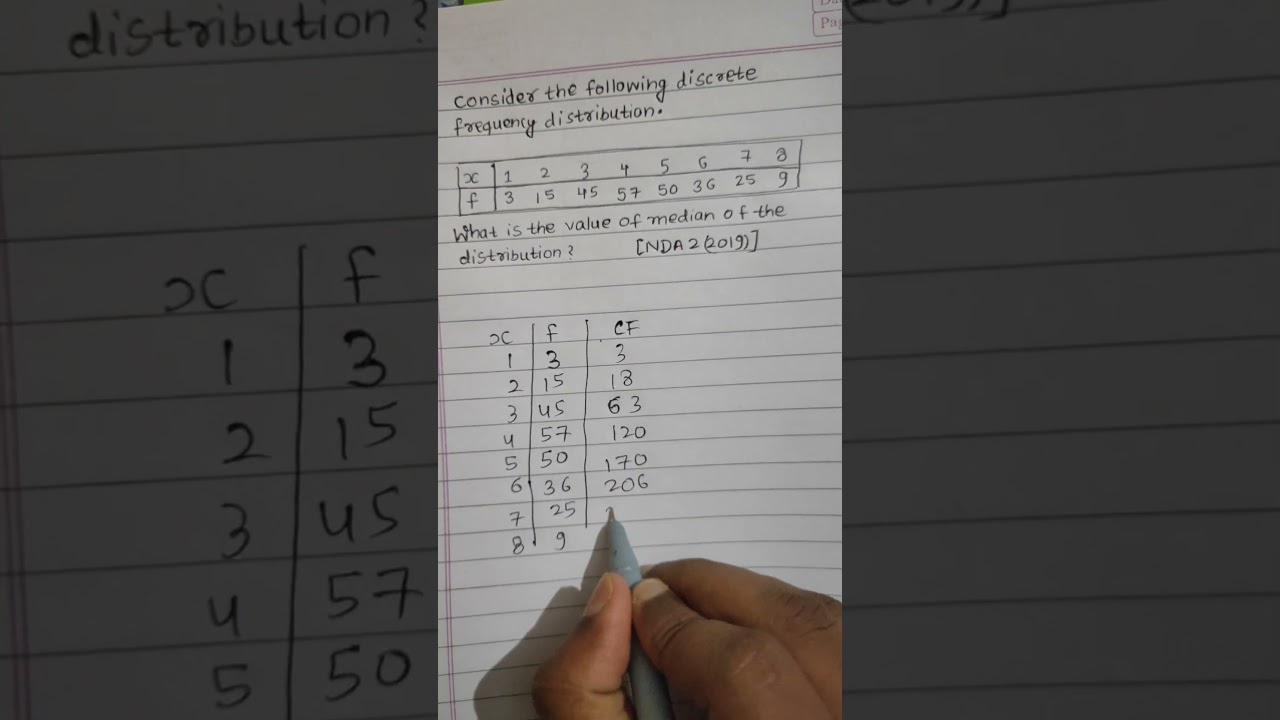 Consider the following discrete
frequency distribution.
x 1 2 3 4 5 6 7 8
f 3 15 45 57 50 36 25 9
What is the value of median of the
distribution? [NDA 2 (2019)]
x f CF
1 3 3
2 15 18
3 45 63
4 57 120
5 50 170
6 36 206
7 25 2
8 9
distribution?
x f
1 3
2 15
3 45
4 57
5 50
(2019)]